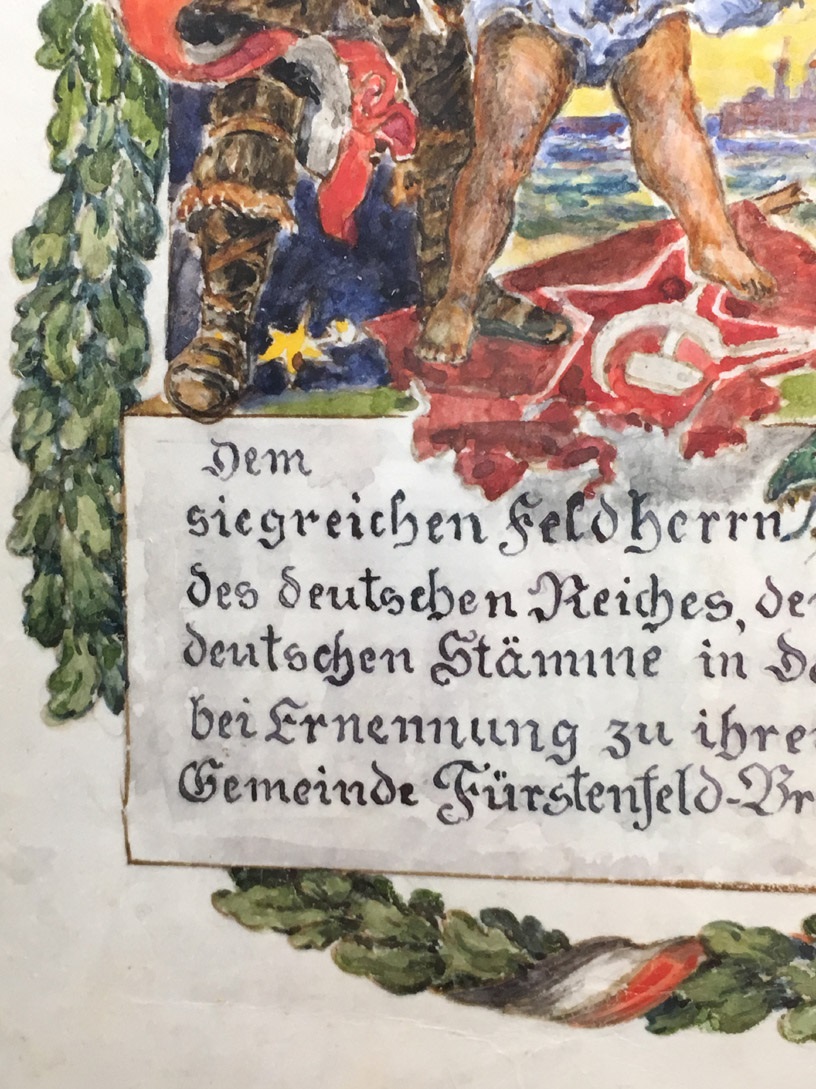 Dem
siegreichen Feldherrn
des deutschen Reiches, de
deutschen Stämme in Da
bei Ernennung zu ihre
Gemeinde Fürstenfeld-Br